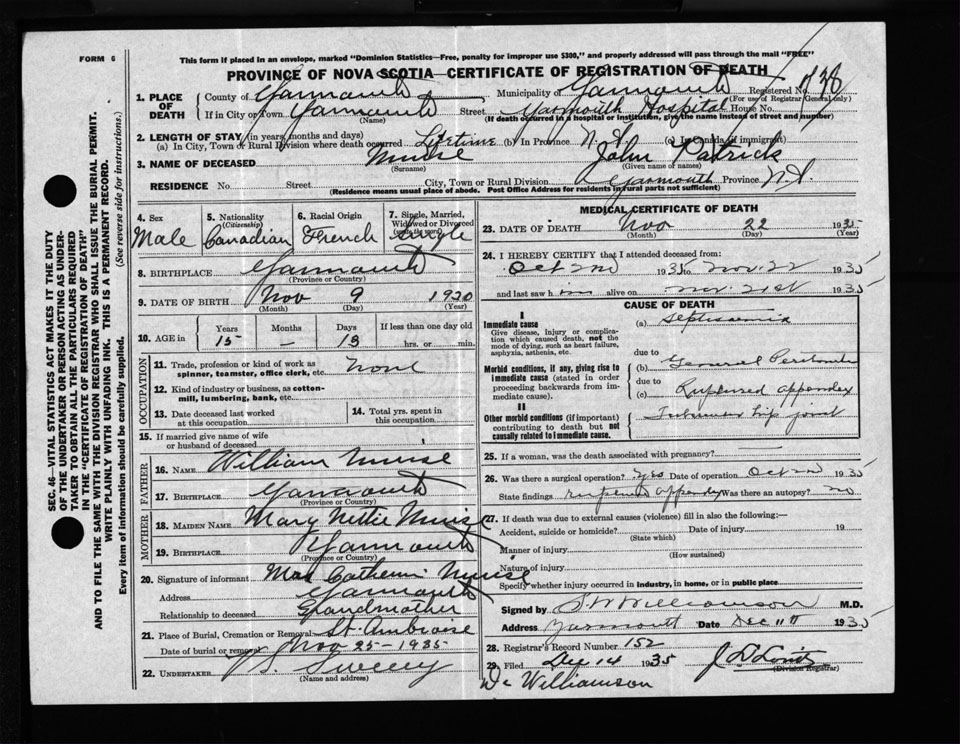 FORM 6
This form if placed in an envelope, marked "Dominion Statistics—Free, penalty for improper use $300," and properly addressed will pass through the mail "FREE"
PROVINCE OF NOVA SCOTIA—CERTIFICATE OF REGISTRATION OF DEATH
1. PLACE OF DEATH
County of Yarmouth Municipality of Yarmouth Registered No.
(For use of Registrar General only)
If in City or Town Yarmouth Street Yarmouth Hospital House No.
(Name) (If death occurred in a hospital or institution, give the name instead of street and number)
2. LENGTH OF STAY (in years, months and days)
(a) In City, Town or Rural Division where death occurred Lifetime (b) In Province N.S. (c) In Canada (if immigrant)
3. NAME OF DECEASED Muise John Patrick
(Surname) (Given name or names)
RESIDENCE No. Street City, Town or Rural Division Yarmouth Province N.S.
(Residence means usual place of abode. Post Office Address for residents in rural parts not sufficient)
SEC. 46—VITAL STATISTICS ACT MAKES IT THE DUTY
OF THE UNDERTAKER OR PERSON ACTING AS UNDER-
TAKER TO OBTAIN ALL THE PARTICULARS REQUIRED
IN THE "CERTIFICATE OF REGISTRATION OF DEATH"
AND TO FILE THE SAME WITH THE DIVISION REGISTRAR WHO SHALL ISSUE THE BURIAL PERMIT.
WRITE PLAINLY WITH UNFADING INK. THIS IS A PERMANENT RECORD.
Every item of information should be carefully supplied. (See reverse side for instructions.)
4. Sex
Male
5. Nationality
(Citizenship)
Canadian
6. Racial Origin
French
7. Single, Married,
Widowed or Divorced
Single
8. BIRTHPLACE Yarmouth
(Province or Country)
9. DATE OF BIRTH Nov 9 1920
(Month) (Day) (Year)
10. AGE in
Years Months Days If less than one day old
15 — 13 hrs. or min.
OCCUPATION
11. Trade, profession or kind of work as
spinner, teamster, office clerk, etc. None
12. Kind of industry or business, as cotton-
mill, lumbering, bank, etc.
13. Date deceased last worked
at this occupation
14. Total yrs. spent in
this occupation
15. If married give name of wife
or husband of deceased
FATHER
16. NAME William Muise
17. BIRTHPLACE Yarmouth
(Province or Country)
MOTHER
18. MAIDEN NAME Mary Nettie Muise
19. BIRTHPLACE Yarmouth
(Province or Country)
20. Signature of informant Mrs Catherine Muise
Address Yarmouth
Relationship to deceased Grandmother
21. Place of Burial, Cremation or Removal St. Ambroise
Date of burial or removal Nov 25-1935
22. UNDERTAKER Sweeny
(Name and address)
MEDICAL CERTIFICATE OF DEATH
23. DATE OF DEATH Nov 22 1935
(Month) (Day) (Year)
24. I HEREBY CERTIFY that I attended deceased from:
Oct 2nd 1935 to Nov. 22 1935
and last saw him alive on Nov. 21st 1935
CAUSE OF DEATH
I
Immediate cause
Give disease, injury or complica-
tion which caused death, not the
mode of dying, such as heart failure,
asphyxia, asthenia, etc.
(a) Septicaemia
due to
Morbid conditions, if any, giving rise to
immediate cause (stated in order
proceeding backwards from im-
mediate cause).
(b) General Peritonitis
due to
(c) Ruptured appendix
II
Other morbid conditions (if important)
contributing to death but not
causally related to immediate cause.
hip joint
25. If a woman, was the death associated with pregnancy?
26. Was there a surgical operation? Yes Date of operation Oct 2nd 1935
State findings ruptured appendix Was there an autopsy? no
27. If death was due to external causes (violence) fill in also the following:—
Accident, suicide or homicide? Date of injury 19
(State which)
Manner of injury
(How sustained)
Nature of injury
Specify whether injury occurred in industry, in home, or in public place
Signed by S W Williamson M.D.
Address Yarmouth Date Dec 11th 1935
28. Registrar's Record Number 152
29. Filed Dec 14 1935
(Division Registrar)
Dr Williamson